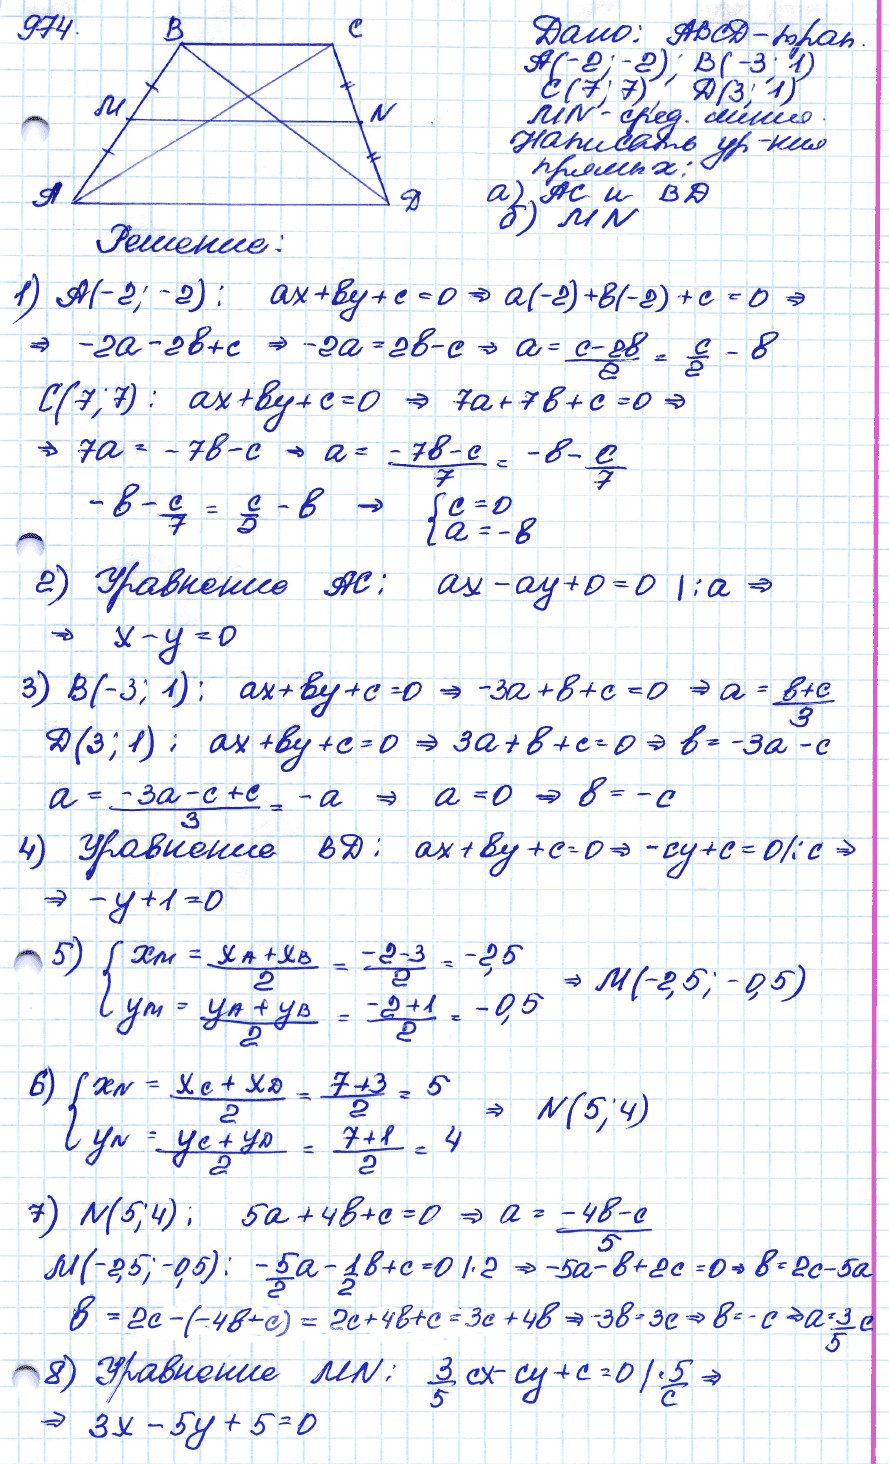 974.
B C
M N
A D
Дано: ABCD - трап.
A(-2; -2); B(-3; 1)
C(7; 7), D(3; 1)
MN - сред. линия.
Написать ур-ния
прямых:
а) AC и BD
б) MN
Решение:
1) A(-2; -2): ax+by+c=0 ⇒ a(-2)+b(-2)+c=0 ⇒
⇒ -2a-2b+c ⇒ -2a=2b-c ⇒ a = (c-2b)/2 = c/2 - b
C(7; 7): ax+by+c=0 ⇒ 7a+7b+c=0 ⇒
⇒ 7a = -7b-c ⇒ a = (-7b-c)/7 = -b - c/7
-b - c/7 = c/2 - b ⇒ { c=0
a=-b
2) Уравнение AC: ax-ay+0=0 |:a ⇒
⇒ x-y=0
3) B(-3; 1): ax+by+c=0 ⇒ -3a+b+c=0 ⇒ a = (b+c)/3
D(3; 1): ax+by+c=0 ⇒ 3a+b+c=0 ⇒ b=-3a-c
a = (-3a-c+c)/3 = -a ⇒ a=0 ⇒ b=-c
4) Уравнение BD: ax+by+c=0 ⇒ -cy+c=0 |:c ⇒
⇒ -y+1=0
5) { xM = (xA+xB)/2 = (-2-3)/2 = -2,5
yM = (yA+yB)/2 = (-2+1)/2 = -0,5 ⇒ M(-2,5; -0,5)
6) { xN = (xC+xD)/2 = (7+3)/2 = 5
yN = (yC+yD)/2 = (7+1)/2 = 4 ⇒ N(5; 4)
7) N(5; 4): 5a+4b+c=0 ⇒ a = (-4b-c)/5
M(-2,5; -0,5): -5/2a - 1/2b+c=0 |·2 ⇒ -5a-b+2c=0 ⇒ b=2c-5a
b = 2c-(-4b+c) = 2c+4b+c = 3c+4b ⇒ -3b=3c ⇒ b=-c ⇒ a=3/5c
8) Уравнение MN: 3/5 cx-cy+c=0 |·5/c ⇒
⇒ 3x-5y+5=0